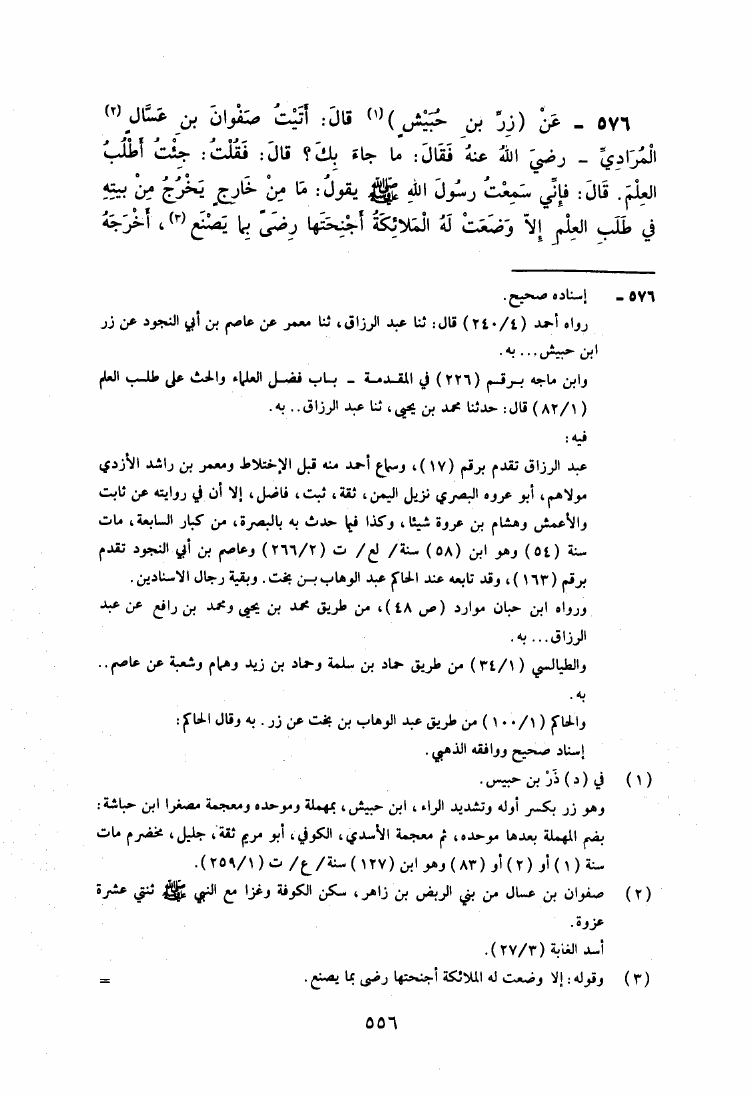 ٥٧٦ – عَنْ (زِرِّ بن حُبَيْشٍ)(١) قالَ: أَتَيْتُ صَفْوانَ بن عَسَّالٍ(٢)
الْمُرَادِيِّ – رضيَ اللهُ عنهُ فَقَالَ: ما جاءَ بِكَ؟ قالَ: فَقُلْتُ: جِئْتُ أَطْلُبُ
العِلْمَ. قَالَ: فإنِّي سَمِعْتُ رسُولَ اللهِ ﷺ يقولُ: مَا مِنْ خَارِجٍ يَخْرُجُ مِنْ بيتِهِ
في طَلَبِ العِلْمِ إلاَّ وَضَعَتْ لَهُ الْمَلائِكَةُ أَجْنِحَتَها رِضَىً بِما يَصْنَع(٣)، أَخْرَجَهُ
٥٧٦ – إسناده صحيح.
رواه أحمد (٢٤٠/٤) قال: ثنا عبد الرزاق، ثنا معمر عن عاصم بن أبي النجود عن زر
ابن حبيش... به.
وابن ماجه برقم (٢٢٦) في المقدمة – باب فضل العلماء والحث على طلب العلم
(٨٢/١) قال: حدثنا محمد بن يحيى، ثنا عبد الرزاق.. به.
فيه:
عبد الرزاق تقدم برقم (١٧)، وسماع أحمد منه قبل الإختلاط ومعمر بن راشد الأزدي
مولاهم، أبو عروه البصري نزيل اليمن، ثقة، ثبت، فاضل، إلا أن في روايته عن ثابت
والأعمش وهشام بن عروة شيئا، وكذا فيما حدث به بالبصرة، من كبار السابعة، مات
سنة (٥٤) وهو ابن (٥٨) سنة/ لع/ ت (٢٦٦/٢) وعاصم بن أبي النجود تقدم
برقم (١٦٣)، وقد تابعه عند الحاكم عبد الوهاب بن بخت. وبقية رجال الاسنادين.
ورواه ابن حبان موارد (ص ٤٨)، من طريق محمد بن يحيى ومحمد بن رافع عن عبد
الرزاق... به.
والطيالسي (٣٤/١) من طريق حماد بن سلمة وحماد بن زيد وهمام وشعبة عن عاصم..
به.
والحاكم (١٠٠/١) من طريق عبد الوهاب بن بخت عن زر. به وقال الحاكم:
إسناد صحيح ووافقه الذهبي.
(١) في (د) ذَرْ بن حبيس.
وهو زر بكسر أوله وتشديد الراء، ابن حبيش، بمهملة وموحده ومعجمة مصغرا ابن حباشة:
بضم المهملة بعدها موحده، ثم معجمة الأسدي، الكوفي، أبو مريم ثقة، جليل، مخضرم مات
سنة (١) أو (٢) أو (٨٣) وهو ابن (١٢٧) سنة/ ع/ ت (٢٥٩/١).
(٢) صفوان بن عسال من بني الربض بن زاهر، سكن الكوفة وغزا مع النبي ﷺ ثنتي عشرة
عزوة.
أسد الغابة (٢٧/٣).
(٣) وقوله: إلا وضعت له الملائكة أجنحتها رضى بما يصنع. =
٥٥٦